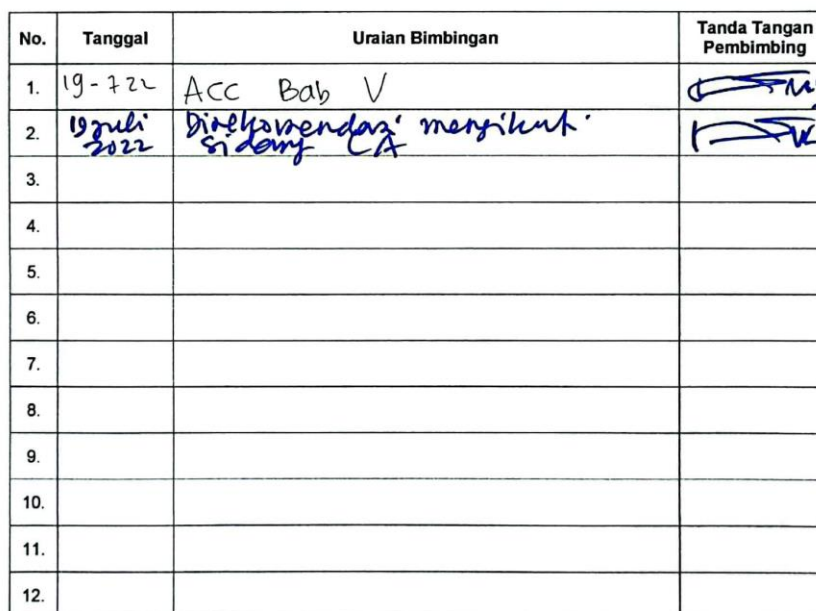 No. Tanggal Uraian Bimbingan Tanda Tangan Pembimbing
1. 19-722 ACC Bab V
2. 19 Juli 2022 Direkomendasi mengikuti sidang LA
3.
4.
5.
6.
7.
8.
9.
10.
11.
12.